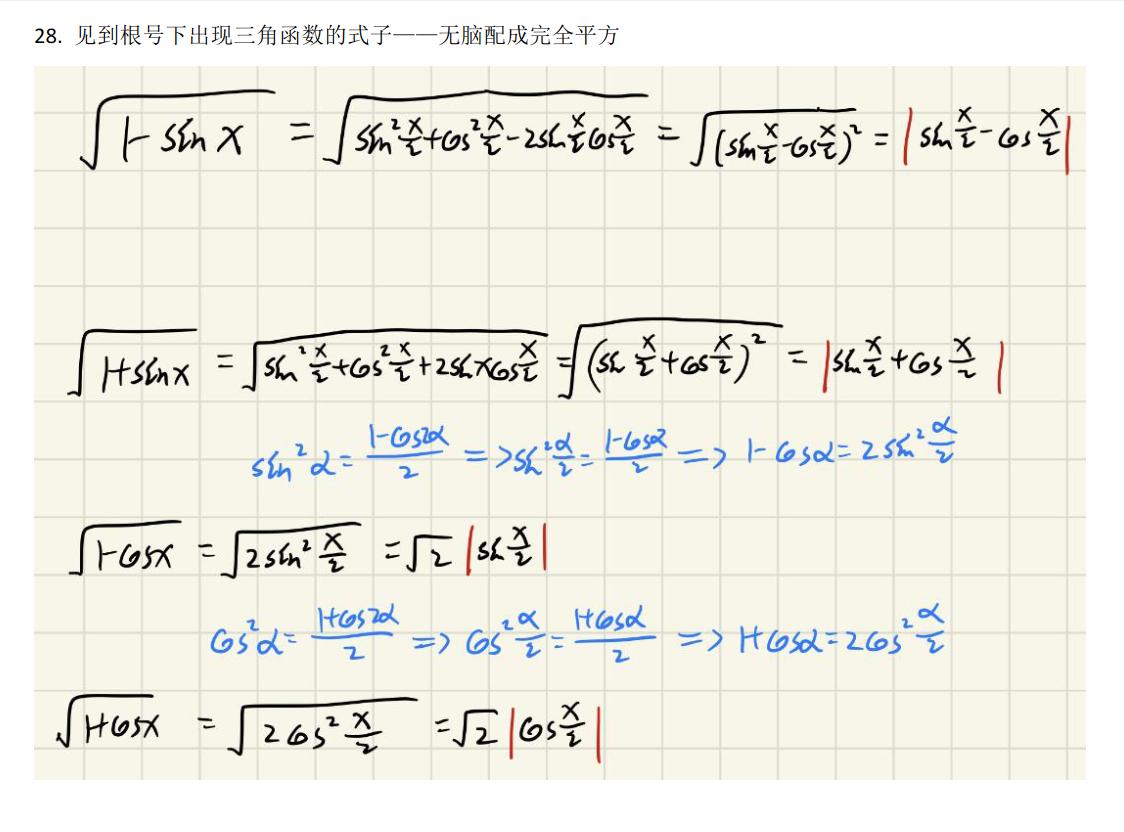 28. 见到根号下出现三角函数的式子——无脑配成完全平方
√(1-sin x) = √(sin²x/2+cos²x/2-2sin x/2 cos x/2) = √((sin x/2-cos x/2)²) = |sin x/2-cos x/2|
√(1+sinx) = √(sin²x/2+cos²x/2+2sinxcos x/2) = √((sin x/2+cos x/2)²) = |sin x/2+cos x/2|
sin²α = (1-cos2α)/2 => sin²α/2 = (1-cosα)/2 => 1-cosα = 2sin²α/2
√(1-cosx) = √(2sin²x/2) = √2|sin x/2|
cos²α = (1+cos2α)/2 => cos²α/2 = (1+cosα)/2 => 1+cosα = 2cos²α/2
√(1+cosx) = √(2cos²x/2) = √2|cos x/2|